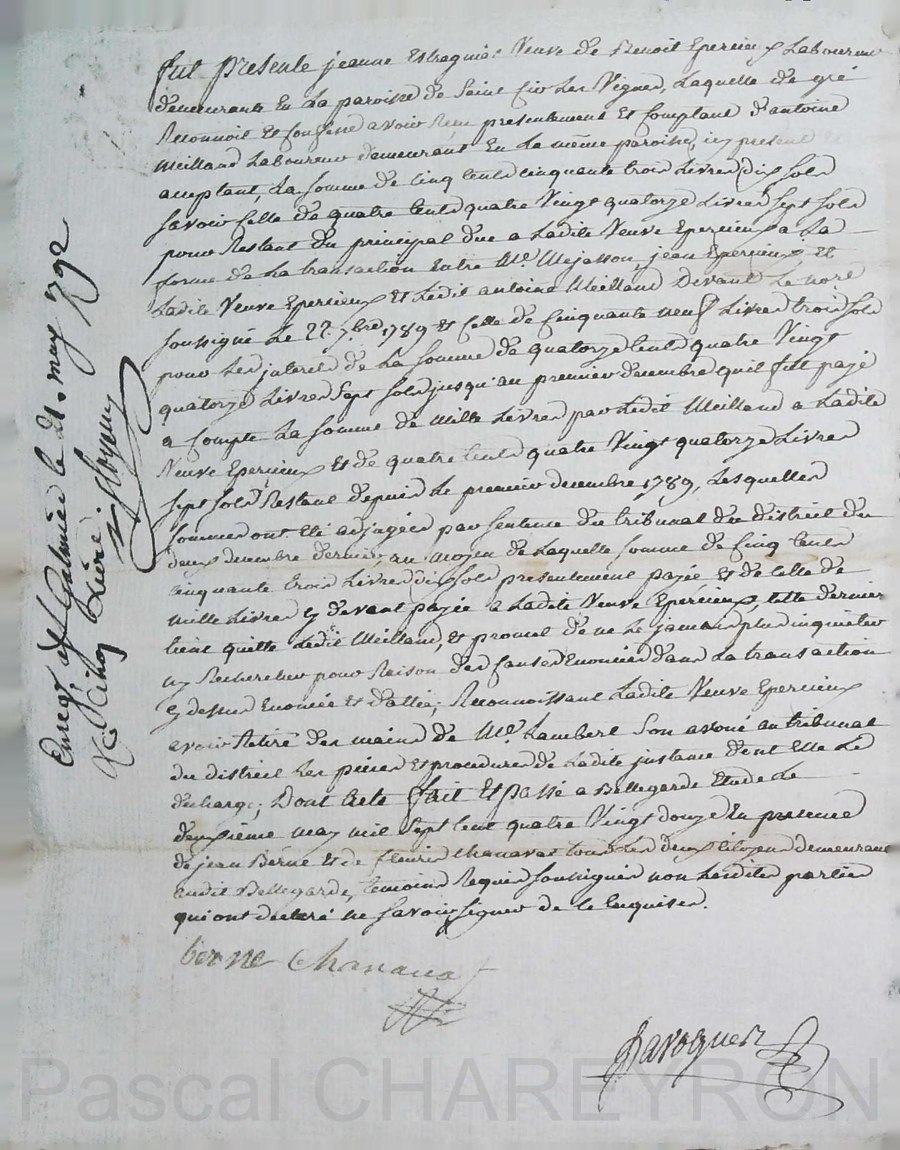 fut presente jeanne Estragnié Veuve de Benoit Epercieux Laboureur
demeurante En La paroisse de Saint Cir Les Vignes, Laquelle de gré
Reconnoit Et Confesse avoir Reçu presentement Et Comptant d'antoine
Meilland Laboureur demeurant En La même paroisse, icy present
acceptant, La Somme de Cinq Cents Cinquante trois Livres dix Sols
Savoir Celle de quatre Cents quatre Vingt quatorze Livres Sept Sols
pour Restant du principal due a Ladite Veuve Epercieux a La
forme de La transaction Entre Me. Mejasson, jean Epercieux, Et
Ladite Veuve Epercieux Et Ledit antoine Meilland Devant Le nore.
Soussigné Le 27. 7bre. 1789 et Celle de Cinquante neuf Livres trois Sols
pour Les jnterets de La Somme de quatorze Cents quatre Vingt
quatorze Livres Sept Sols jusqu'au premier decembre qu'il fut payé
a Compte La Somme de Mille Livres par Ledit Meilland a Ladite
Veuve Epercieux Et de quatre Cents quatre Vingt quatorze Livres
Sept Sols Restant depuis Le premier decembre 1789, Lesquelles
Sommes ont Eté adjugées par Sentence du tribunal du district du
deux decembre dernier, au moyen de Laquelle Somme de Cinq Cents
Cinquante trois Livres dix Sols presentement payée Et de Celle de
mille Livres Cy devant payée a Ladite Veuve Epercieux, Cette derniere
tient quitte Ledit Meilland, Et promet de ne Le jamais plus inquieter
ny Rechercher pour Raison des Causes Enoncées dans La transaction
Cy dessus Enoncée Et dattée; Reconnoissant Ladite Veuve Epercieux
avoir Retiré des mains de Me. Lambert Son avoué au tribunal
du district Les pieces Et procedures de Ladite jnstance dont Elle Le
decharge; Dont Acte Fait Et passé a Bellegarde Etude Le
deuxième may mil Sept Cent quatre Vingt douze En presence
de jean Berne Et de fleurie Chanavat tous Les deux Citoyens demeurant
audit Bellegarde, temoins Requis Soussignés non Lesdites parties
qui ont declaré ne Savoir Signer de Ce Enquises.
berne Chanavat
Enregé. a St Galmier le 21. may 1792
Pascal CHAREYRON